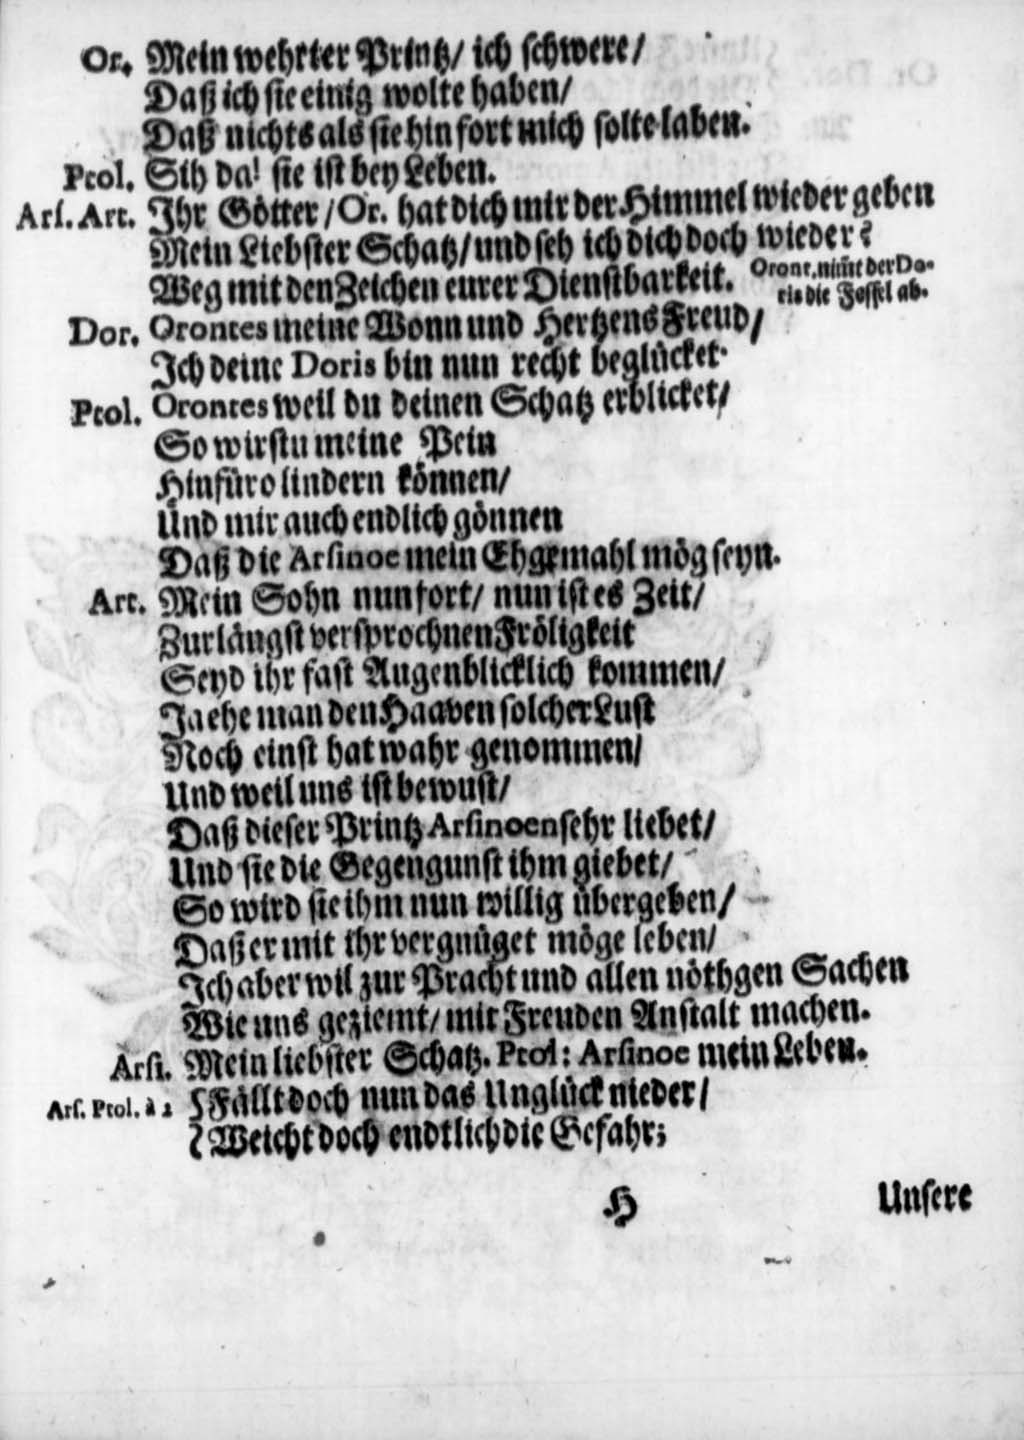 Or. Mein wehrter Printz/ ich schwere/
Daß ich sie einig wolte haben/
Daß nichts als sie hinfort mich solte laben.
Ptol. Sih da! sie ist bey Leben.
Ars. Art. Ihr Götter/Or. hat dich mir der Himmel wieder geben
Mein Liebster Schatz/und seh ich dich doch wieder?
Weg mit den Zeichen eurer Dienstbarkeit. Oront. nim̃t der Do-
ris die Fessel ab.
Dor. Orontes meine Wonn und Hertzens Freud/
Ich deine Doris bin nun recht beglücket.
Ptol. Orontes weil du deinen Schatz erblicket/
So wirstu meine Pein
Hinfüro lindern können/
Und mir auch endlich gönnen
Daß die Arsinoe mein Ehgemahl mög seyn.
Art. Mein Sohn nunfort/ nun ist es Zeit/
Zur längst versprochnen Fröligkeit
Seyd ihr fast Augenblicklich kommen/
Ja ehe man den Haaven solcher Lust
Noch einst hat wahr genommen/
Und weil uns ist bewust/
Daß dieser Printz Arsinoen sehr liebet/
Und sie die Gegengunst ihm giebet/
So wird sie ihm nun willig übergeben/
Daß er mit ihr vergnüget möge leben/
Ich aber wil zur Pracht und allen nöthgen Sachen
Wie uns geziemt/ mit Freuden Anstalt machen.
Arsi. Mein liebster Schatz. Ptol: Arsinoe mein Leben.
Ars. Ptol. à 2 { Fällt doch nun das Unglück nieder/
Weicht doch endtlich die Gefahr;
H Unsere